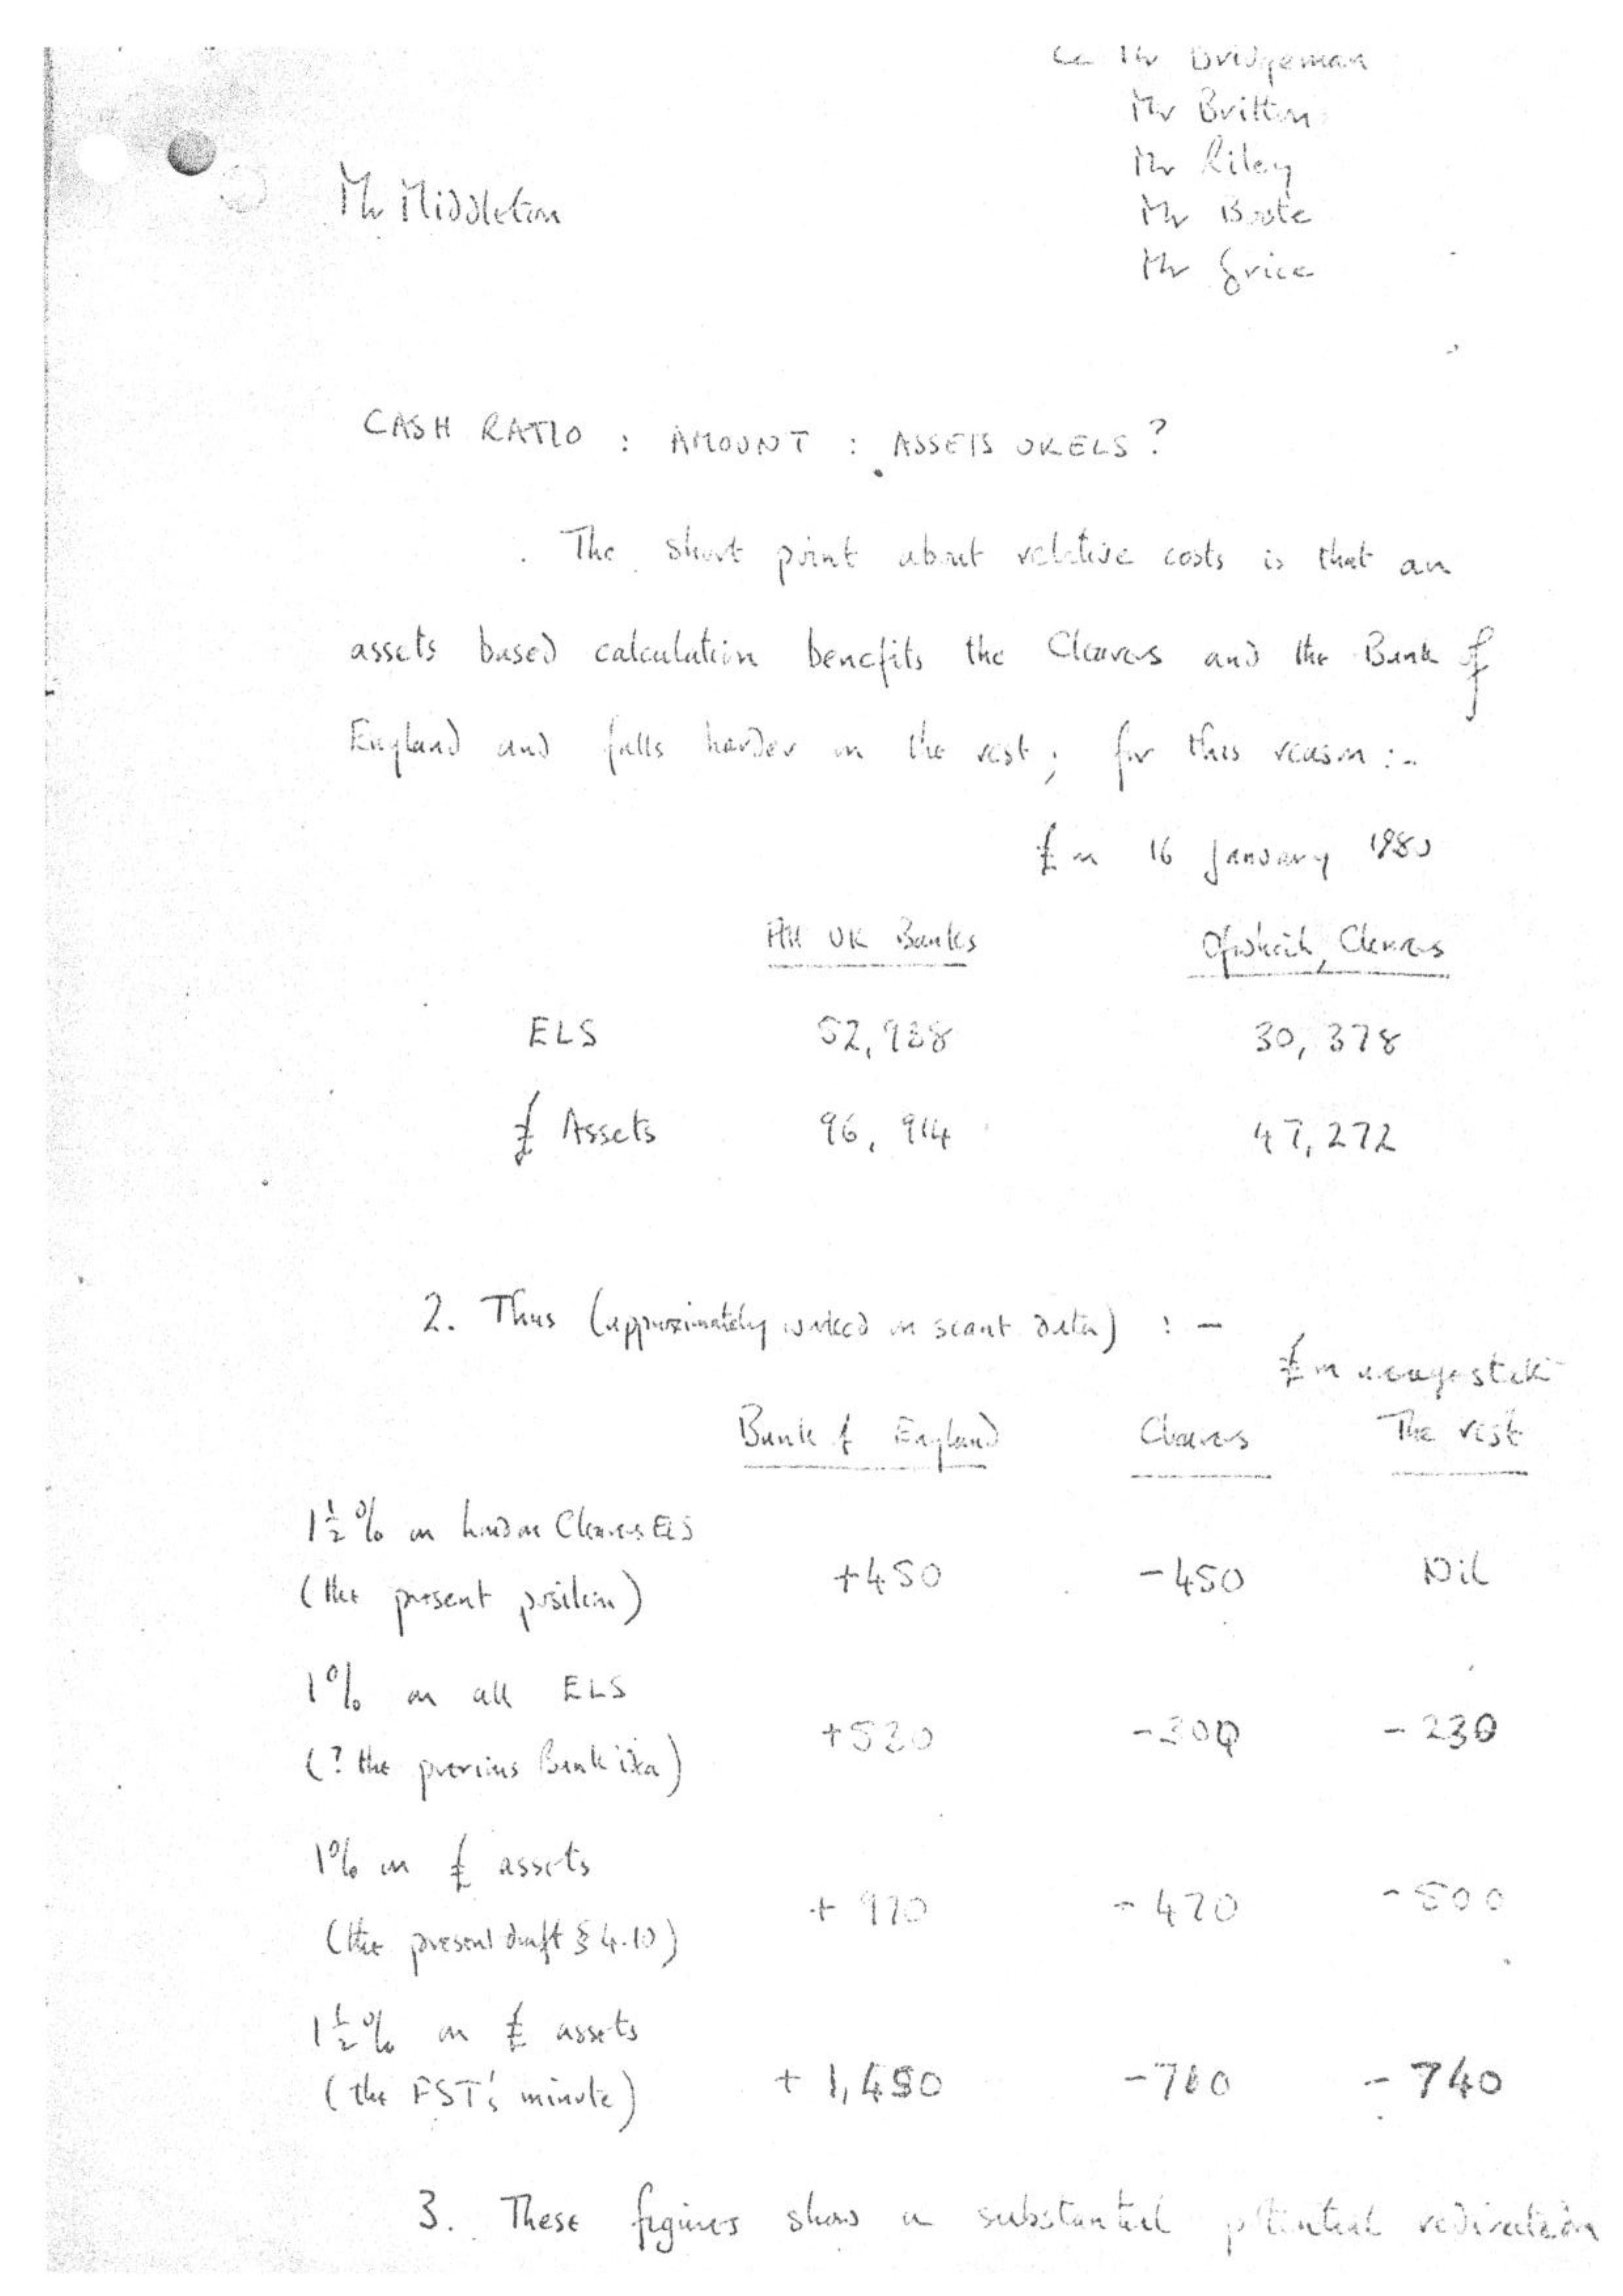 cc Mr Bridgeman
Mr Britton
Mr Riley
Mr Boote
Mr Grice
Mr Middleton
CASH RATIO : AMOUNT : ASSETS OR ELS ?
The short point about relative costs is that an
assets based calculation benefits the Clearers and the Bank of
England and falls harder on the rest; for this reason :-
£m 16 January 1980
All UK Banks Of which, Clearers
ELS 52,938 30,378
£ Assets 96,914 47,272
2. Thus (approximately worked on scant data) : -
£m
Bank of England Clearers The rest
1½% on London Clearers ELS
(the present position) +450 -450 Nil
1% on all ELS
(? the previous Bank idea) +530 -300 -230
1% on £ assets
(the present draft § 4.10) + 970 - 470 - 500
1½% on £ assets
(the FST's minute) + 1,450 -710 - 740
3. These figures show a substantial potential redirection